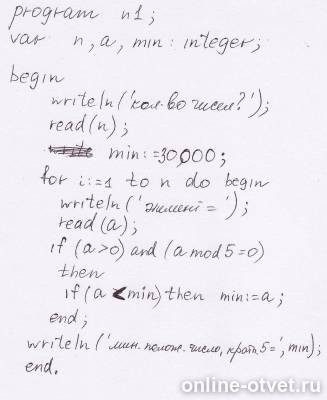 program n1;
var n, a, min: integer;
begin
writeln('кол-во чисел?');
read(n);
min:=30000;
for i:=1 to n do begin
writeln('элемент=');
read(a);
if (a>0) and (a mod 5=0)
then
if (a<min) then min:=a;
end;
writeln('мин. полож. число, кратн. 5=', min);
end.
online-otvet.ru